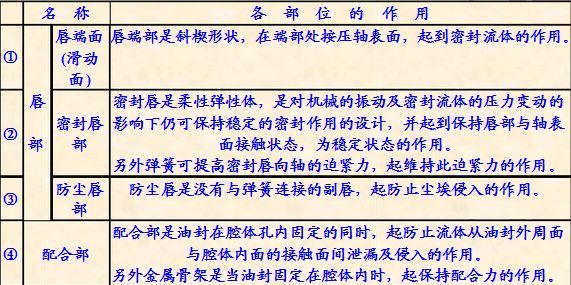 名 称 各 部 位 的 作 用
① 唇部 唇端面(滑动面) 唇端部是斜楔形状，在端部处按压轴表面，起到密封流体的作用。
② 密封唇部 密封唇是柔性弹性体，是对机械的振动及密封流体的压力变动的
影响下仍可保持稳定的密封作用的设计，并起到保持唇部与轴表
面接触状态，为稳定状态的作用。
另外弹簧可提高密封唇向轴的迫紧力，起维持此迫紧力的作用。
③ 防尘唇部 防尘唇是没有与弹簧连接的副唇，起防止尘埃侵入的作用。
④ 配合部 配合部是油封在腔体孔内固定的同时，起防止流体从油封外周面
与腔体内面的接触面间泄漏及侵入的作用。
另外金属骨架是当油封固定在腔体内时，起保持配合力的作用。